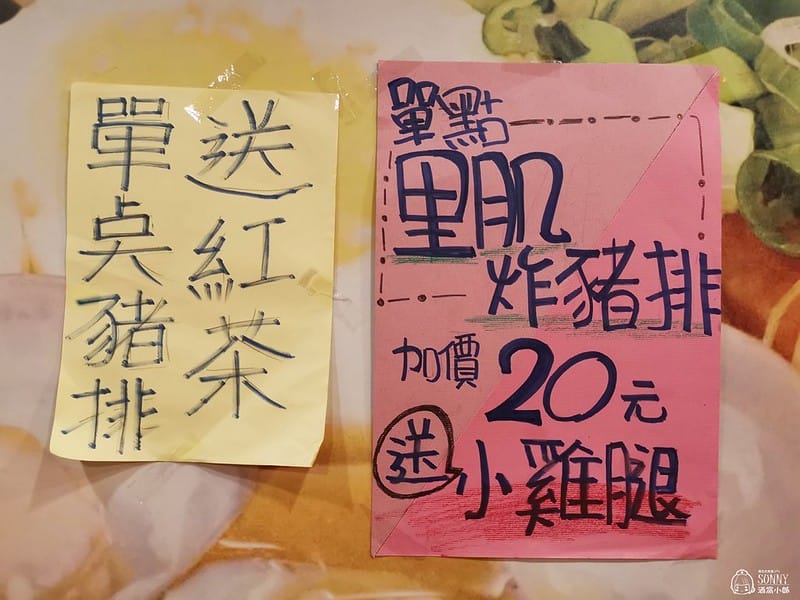 單奌豬排
送紅茶
單點
里肌
炸豬排
加價20元
送小雞腿
SONNY